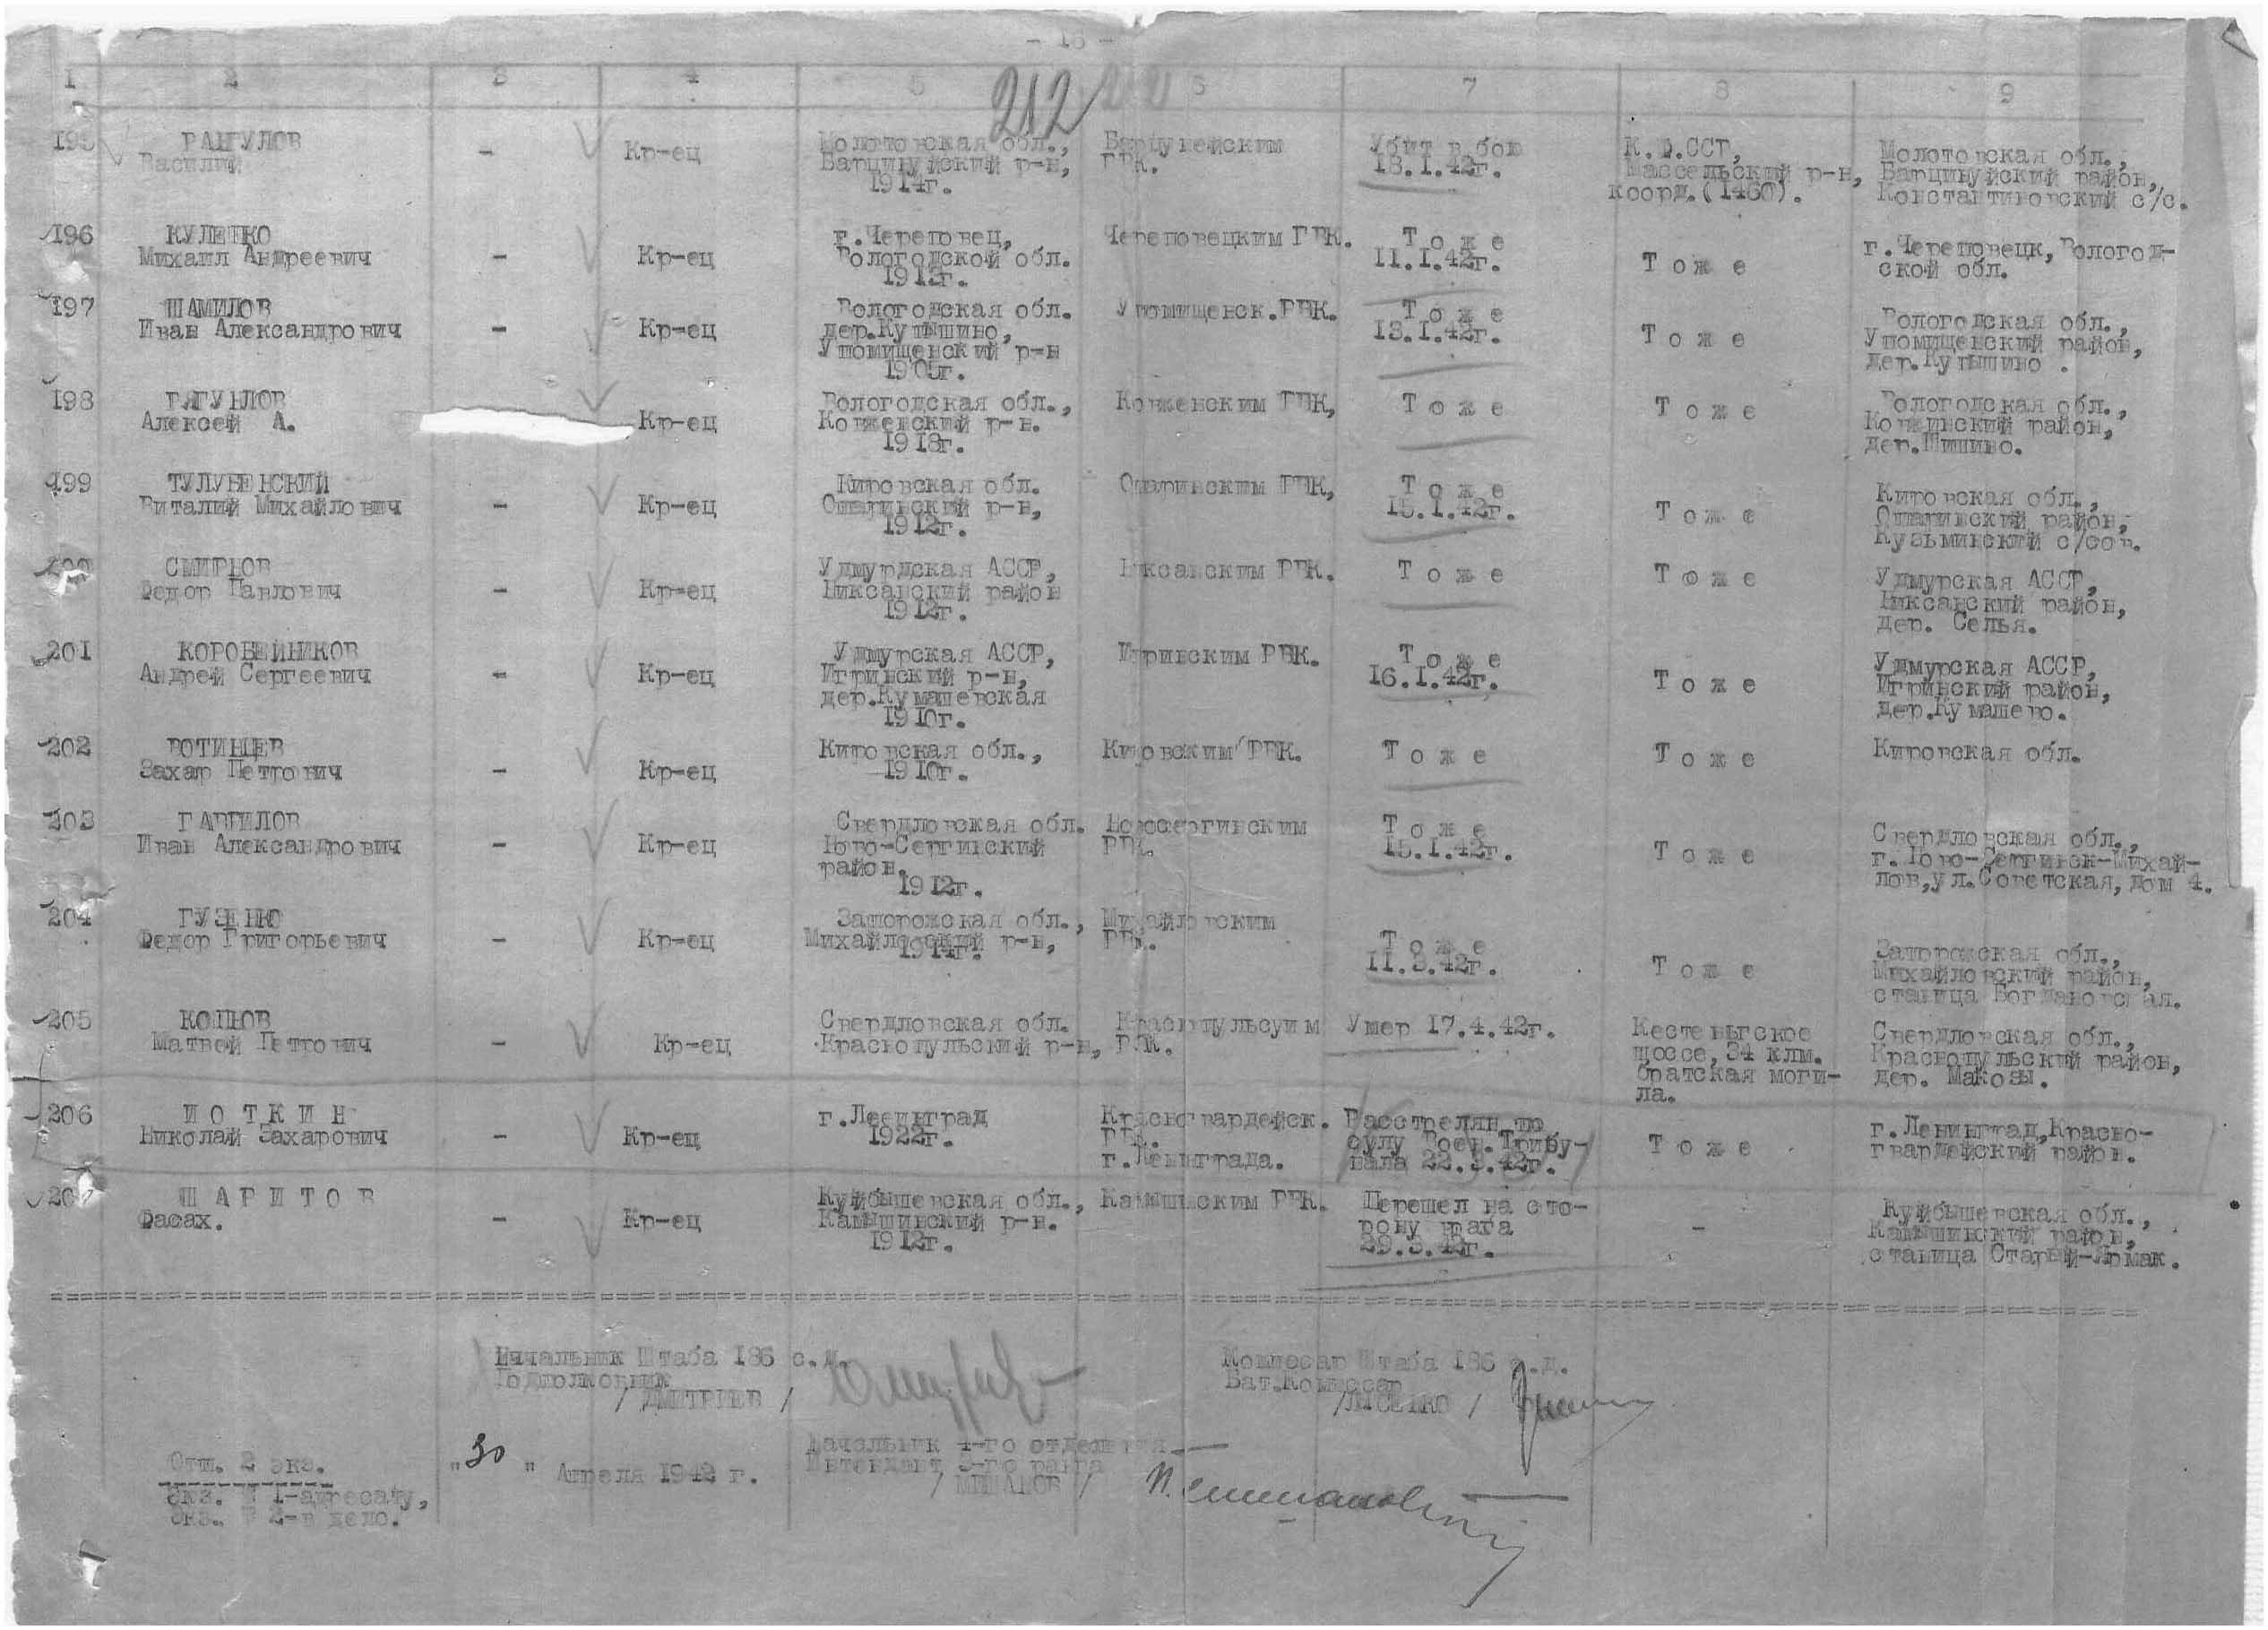 - 16 -
1 2 3 4 5 6 7 8 9
212
195 РАНГУЛОВ Василий
-
Кр-ец
Молотовская обл.,
Барцинуйский р-н,
1914г.
Барцунейским
РВК.
Убит в бою
18.1.42г.
К.Ф.ССР,
Массельский р-н,
коорд.(1460).
Молотовская обл.,
Барцинуйский район,
Константиновский с/с.
196 КУЛЕПКО
Михаил Андреевич
-
Кр-ец
г.Череповец,
Вологодской обл.
1913г.
Череповецким ГВК.
Тоже
11.1.42г.
Тоже
г.Череповецк, Вологод-
ской обл.
197 ШАМИЛОВ
Иван Александрович
-
Кр-ец
Вологодская обл.
дер.Кутышино,
Упомищенский р-н
1905г.
Упомищенск.РВК.
Тоже
13.1.42г.
Тоже
Вологодская обл.,
Упомищенский район,
дер.Кутышино.
198
Алексей А.
Кр-ец
Вологодская обл.,
Ковженский р-н.
1918г.
Ковженским РВК,
Тоже
Тоже
Вологодская обл.,
Ковжинский район,
дер.Шишино.
199 ТУЛУБЕНСКИЙ
Виталий Михайлович
-
Кр-ец
Кировская обл.
Ошаринский р-н,
1912г.
Ошаринским РВК,
Тоже
15.1.42г.
Тоже
Кировская обл.,
Ошаринский район,
Кузьминский с/сов.
200 СМИРНОВ
Федор Павлович
-
Кр-ец
Удмурдская АССР,
Никсанский район
1912г.
Никсанским РВК.
Тоже
Тоже
Удмурская АССР,
Никсанский район,
дер. Селья.
201 КОРОБЕЙНИКОВ
Андрей Сергеевич
-
Кр-ец
Удмурская АССР,
Игринский р-н,
дер.Кумашевская
1910г.
Игринским РВК.
Тоже
16.1.42г.
Тоже
Удмурская АССР,
Игринский район,
дер.Кумашево.
202 ВОТИНЦЕВ
Захар Петрович
-
Кр-ец
Кировская обл.,
1910г.
Кировским РВК.
Тоже
Тоже
Кировская обл.
203 ГАВРИЛОВ
Иван Александрович
-
Кр-ец
Свердловская обл.
Ново-Сергинский
район.
1912г.
Новосергинским
РВК.
Тоже
15.1.42г.
Тоже
Свердловская обл.,
г.Ново-Сергинск-Михай-
лов,ул.Советская, дом 4.
204 ГУЗЕНКО
Федор Григорьевич
-
Кр-ец
Запорожская обл.,
Михайловский р-н,
1914г.
Михайловским
РВК.
Тоже
11.3.42г.
Тоже
Запорожская обл.,
Михайловский район,
станица Богдановская.
205 КОПНОВ
Матвей Петрович
-
Кр-ец
Свердловская обл.
Краснопульский р-н,
Краснопульсуим
РВК.
Умер 17.4.42г.
Кестеньгское
шоссе, 34 клм.
братская моги-
ла.
Свердловская обл.,
Краснопульский район,
дер. Макозы.
206 ИОТКИН
Николай Захарович
-
Кр-ец
г.Ленинград
1922г.
Красногвардейск.
РВК.
г.Ленинграда.
Расстрелян по
суду Воен.Трибу-
нала 22.3.42г.
Тоже
г.Ленинград,Красно-
гвардейский район.
207 ШАРИТОВ
Фасах.
-
Кр-ец
Куйбышевская обл.,
Камышинский р-н.
1912г.
Камышиским РВК.
Перешел на сто-
рону врага
29.3.42г.
-
Куйбышевская обл.,
Камышинский район,
станица Старый-Ярмак.
Начальник Штаба 186 с.д.
Подполковник
/ ДМИТРИЕВ /
Комиссар Штаба 186 с.д.
Бат.Комиссар
/ЛЫСЕНКО /
Начальник 4-го отделения
Интендант 3-го ранга
/ МИГАНОВ /
"30" Апреля 1942 г.
Отп. 2 экз.
Экз. № 1-адресату,
Экз. № 2-в дело.